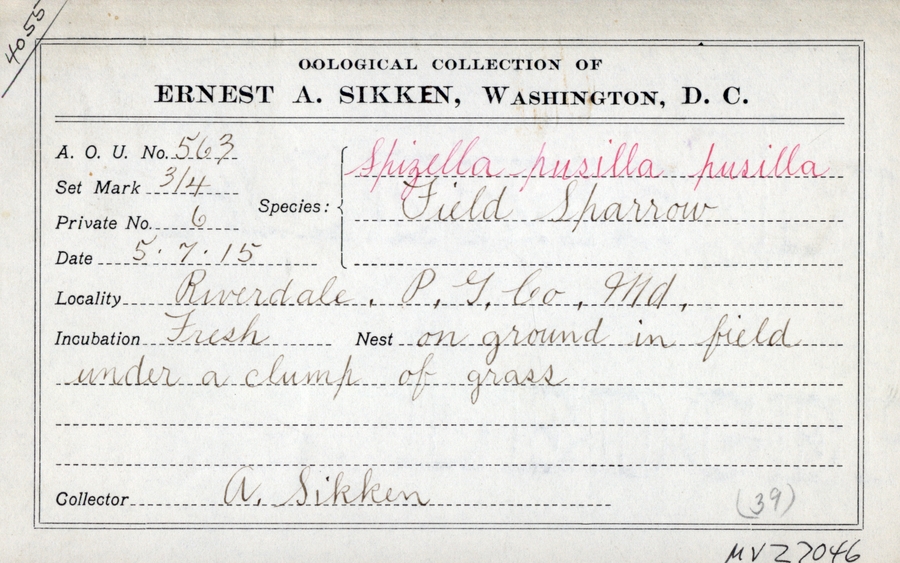 4055
OOLOGICAL COLLECTION OF
ERNEST A. SIKKEN, WASHINGTON, D. C.
A. O. U. No. 563
Set Mark 3/4
Private No. 6
Date 5.7.15
Species: Spizella pusilla pusilla
Field Sparrow
Locality Riverdale, P. G. Co., Md,
Incubation Fresh Nest on ground in field
under a clump of grass
Collector A. Sikken
(39)
MVZ 7046